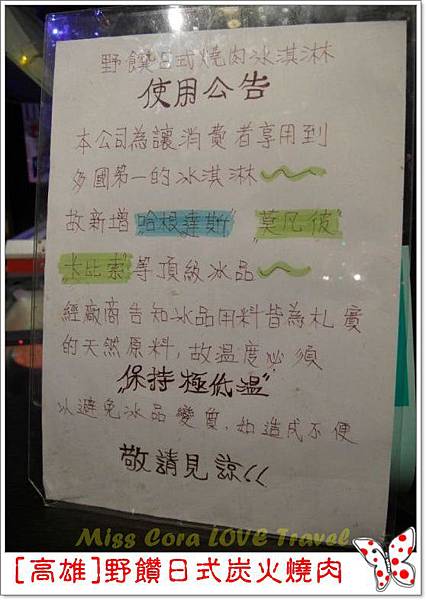 野饌日式燒肉冰淇淋
使用公告
本公司為讓消費者享用到
多國第一的冰淇淋
故新增"哈根達斯" "莫凡彼"
"卡比索"等頂級冰品
經廠商告知冰品用料皆為札實
的天然原料,故溫度必須
"保持極低溫"
以避免冰品變質,如造成不便
敬請見諒
Miss Cora LOVE Travel
[高雄]野饡日式炭火燒肉